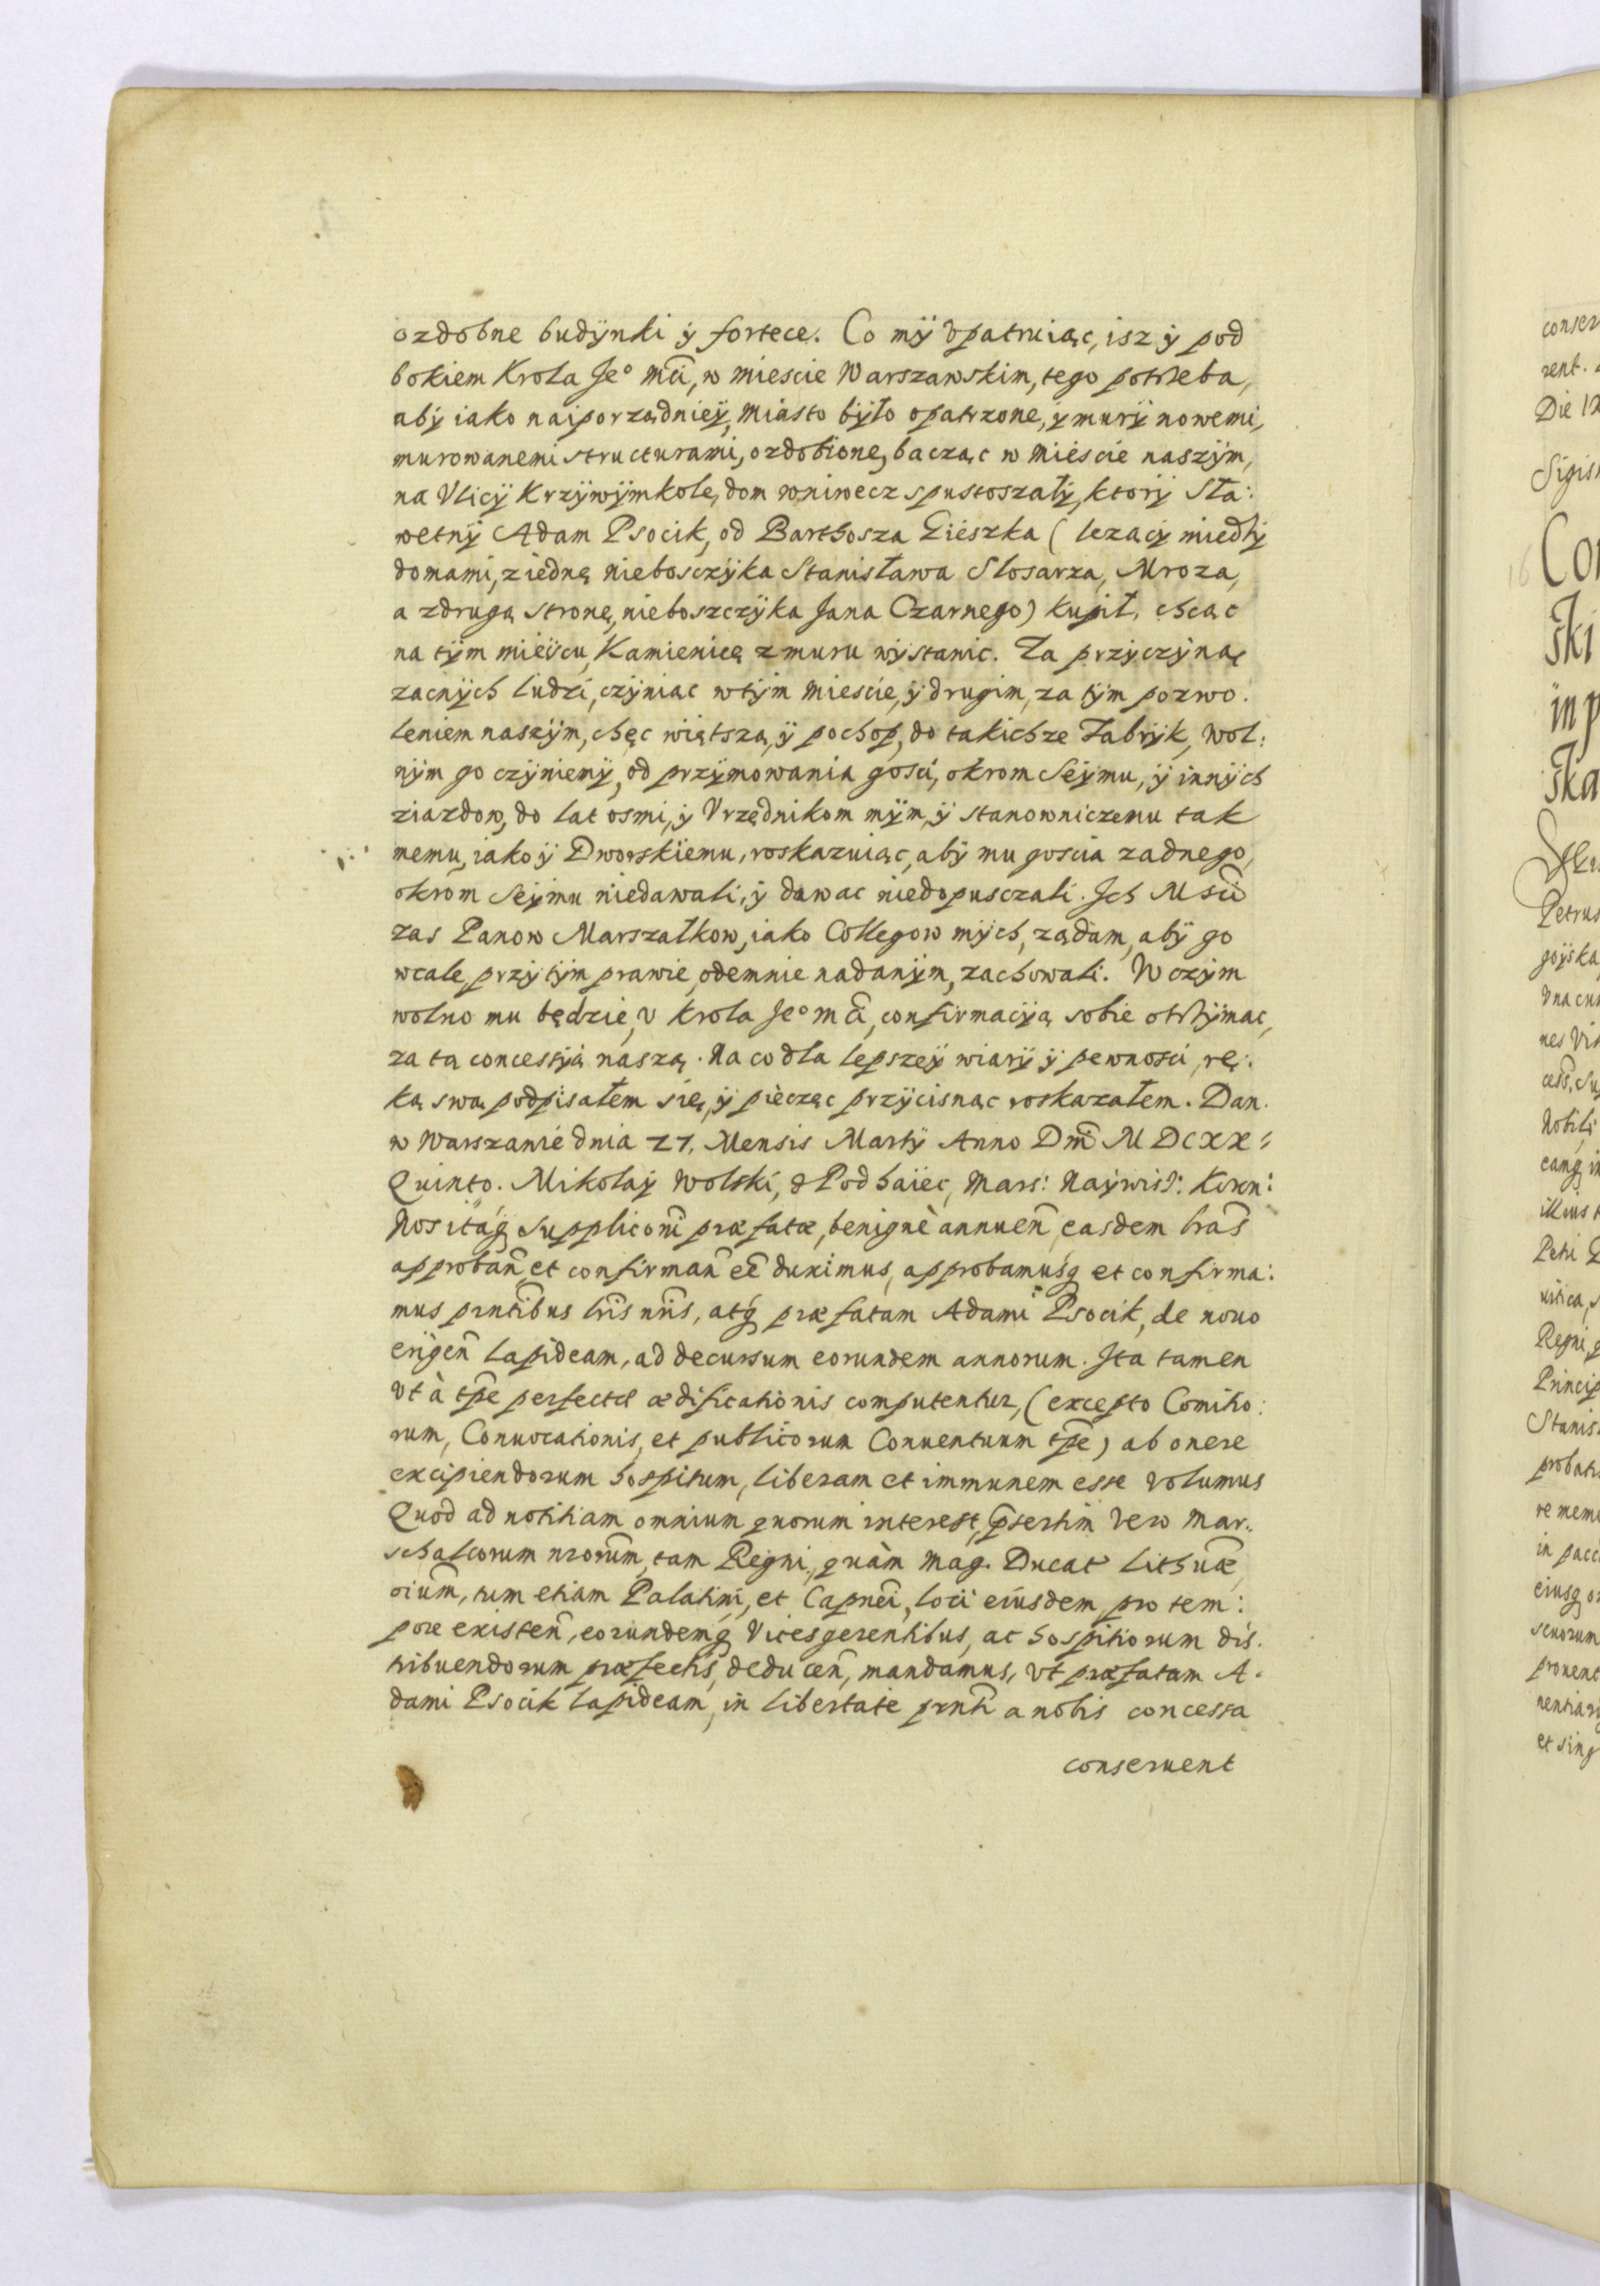 ozdobne budÿnki ÿ fortece. Co mÿ Vpatruiąc, isz ÿ pod
bokiem Krola Jeº Mći, w miescie Warszawskim, tego potrzeba,
abÿ iako naiporządnieÿ, Miasto bÿło opatrzone, ÿ murÿ nowemi,
murowanemi structurami, ozdobione, bacząc w Miescie naszÿm,
na Vlicÿ Krzÿwÿmkole, dom wniwecz spustoszałÿ, ktorÿ Sła:
wetnÿ Adam Psocik, od Barthosza Zieszka ( lezacÿ miedzÿ
domami, z iednę nieboscżÿka Stanisława Slosarza, Mroza,
a zdrugą stronę, nieboszczÿka Jana Czarnego) kupił, chcąc
na tÿm mieÿscu, Kamienicę z muru wÿstawic. Za przÿczÿną
zacnÿch ludzi, czÿniąc wtÿm Miescie, ÿ drugim, za tÿm pozwo:
leniem naszÿm, chęc więtszą, ÿ pochop, do takichze Fabrÿk, wol:
nÿm go czÿniemÿ, od przÿmowania gosci, okrom Seÿmu, ÿ innÿch
ziazdow, do lat osmi, ÿ Vrzędnikom mÿm, ÿ stanowniczemu tak
memu, iako ÿ Dworskiemu, roskazuiąc, abÿ mu goscia zadnego,
okrom Seÿmu niedawali, ÿ dawac niedopusczali. Ich Mści
zas Panow Marszałkow, iako Collegow mÿch, ządam, abÿ go
wcale, przÿ tÿm prawie, odemnie nadanÿm, zachowali. W czÿm
wolno mu będzie, v Krola Jeº Mći, confirmacÿą sobie otrzÿmac,
za tą concessÿą naszą. Na co dla lepszeÿ wiarÿ ÿ pewnosci, rę:
ką swą podpisałem się, ÿ pieczęc przÿcisnąc roskazałem. Dan
w Warszawie dnia 21. Mensis Martÿ Anno Dni MDCXX:
Quinto. Mikołaÿ Wolski, z Podhaiec, Mars: Naÿwisz: Koron:
Nos itaq suppliconi præfatæ, benignè annuen, easdem lras
approban, et confirman eē duximus, approbamusq et confirma:
mus prntibus lris nris, atq præfatam Adami Psocik, de nouo
erigen lapideam, ad decursum eorundem annorum. Ita tamen
Vt à tpe perfectæ ædificationis computentur, (excepto Comitio:
rum, Conuocationis, et publicorum Conuentuum tpe) ab onere
excipiendorum hospitum, liberam et immunem esse volumus
Quod ad notitiam omnium quorum interest, psertim vero Mar:
schalcorum nrorum, tam Regni, quàm Mag. Ducat Lithuæ,
oium, tum etiam Palatini, et Capnei, loci eiusdem pro tem:
pore existen, eorundemq Vicesgerentibus, ac hospitiorum dis:
tribuendorum præfectis, deducen, mandamus, Vt præfatam A:
dami Psocik lapideam, in libertate prnti a nobis concessa
conseruent